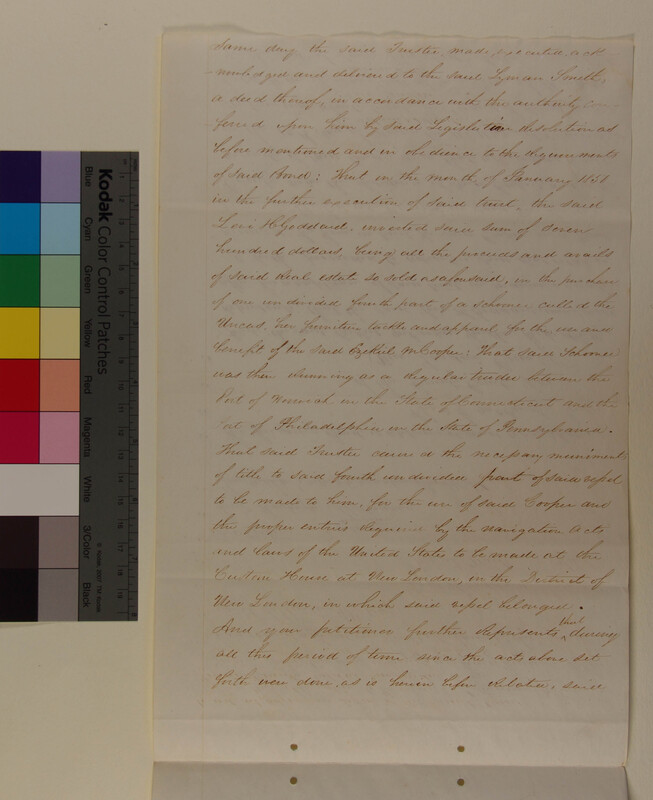 same day the said Trustee, made, executed, ack
nowledged and delivered to the said Lyman Smith,
a deed thereof, in accordance with the authority con
ferred upon him by said Legislative resolution as
before mentioned and in obedience to the requirements
of said Bond; That in the month of January 1851
in the further execution of said trust, the said
Levi H Goddard, invested said sum of seven
hundred dollars, being all the proceeds and avails
of said real estate so sold as aforesaid, in the purchase
of one undivided fourth part of a schooner called the
Uncas, her furniture tackle and apparel for the use and
benefit of the said Ezekiel M Cooper; That said Schooner
was then running as a regular trader between the
Port of Norwich in the State of Connecticut and the
Port of Philadelphia in the State of Pennsylvania.
That said Trustee caused the necessary muniment
of title to said fourth undivided part of said vessel
to be made to him, for the use of said Cooper and
the proper entries required by the navigation Acts
and Laws of the United States to be made at the
Custom House at New London, in the District of
New London, in which said vessel belonged.
And your petitioner further represents, that during
all this period of time since the acts above set
forth were done, as is herein before related, said
Kodak Color Control Patches
Blue
Cyan
Green
Yellow
Red
Magenta
White
3/Color
Black
© Kodak, 2007 TM: Kodak